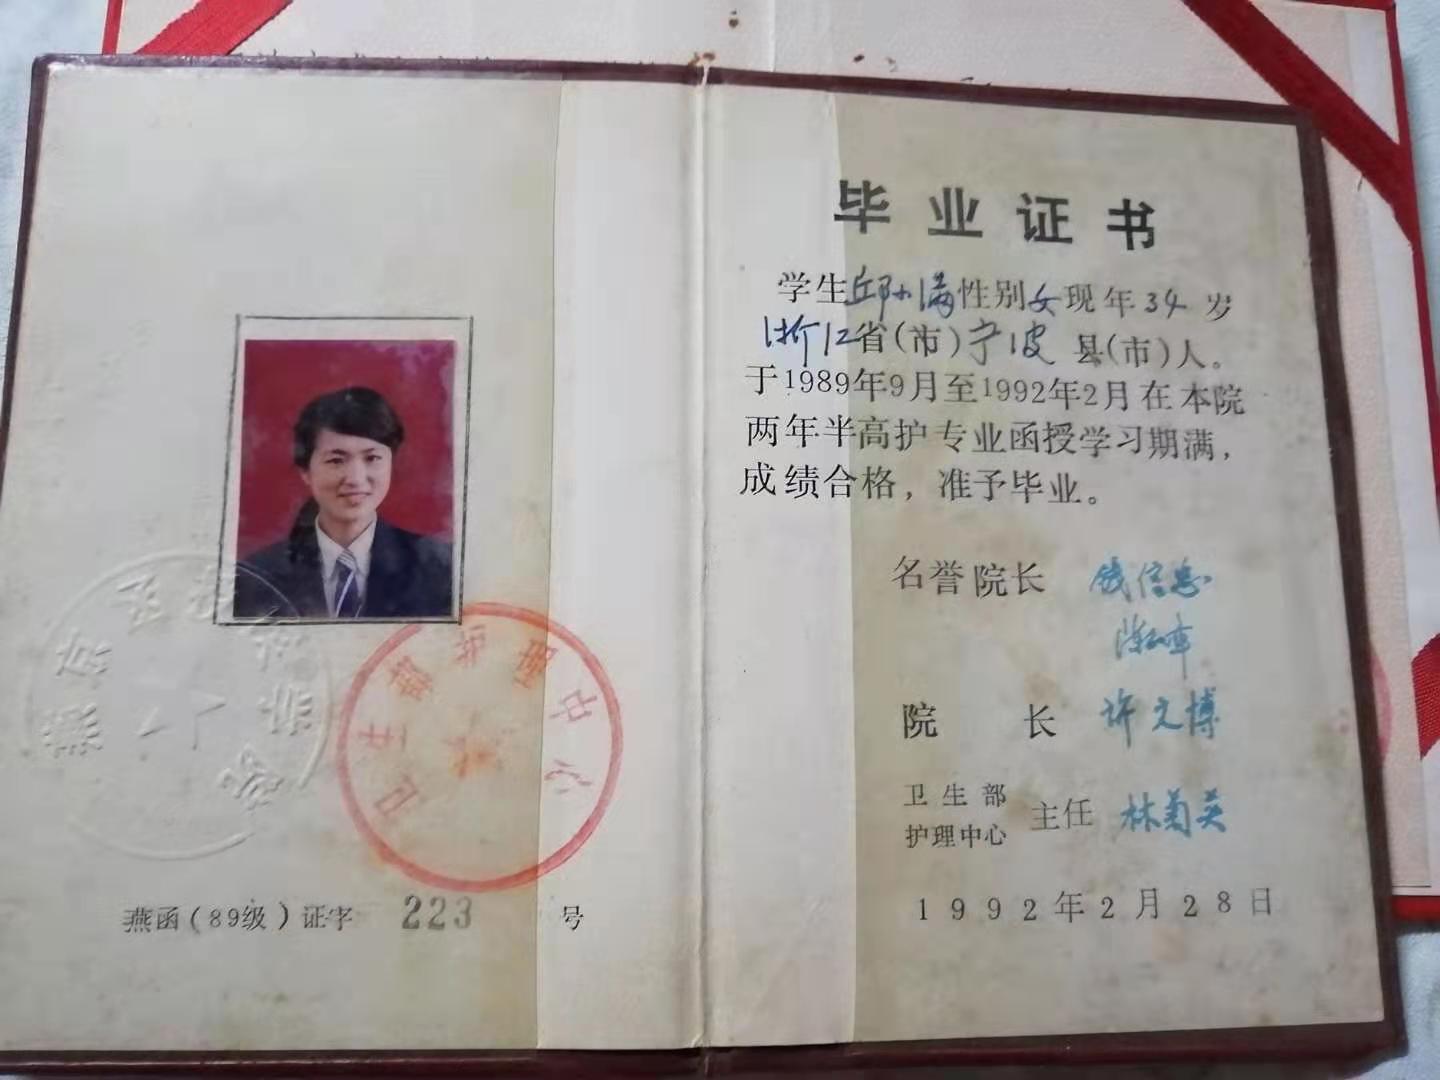 毕业证书
学生邱小满性别女现年34岁
浙江省(市)宁波县(市)人。
于1989年9月至1992年2月在本院
两年半高护专业函授学习期满,
成绩合格,准予毕业。
名誉院长 钱信忠
院长 许文博
卫生部
护理中心 主任 林菊英
1992年2月28日
卫生部护理中心
燕京
燕函(89级)证字 223 号